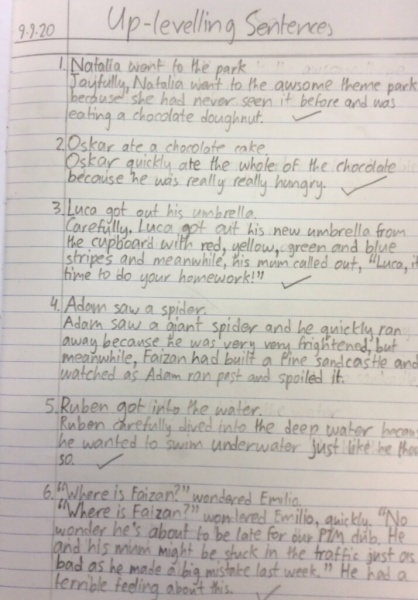 9.9.20
Up-levelling Sentences
1. Natalia went to the park
Joyfully, Natalia went to the awsome theme park
because she had never seen it before and was
eating a chocolate doughnut.
2. Oskar ate a chocolate cake.
Oskar quickly ate the whole of the chocolate
because he was really really hungry.
3. Luca got out his umbrella.
Carefully, Luca got out his new umbrella from
the cupboard with red, yellow, green and blue
stripes and meanwhile, his mum called out, "Luca, i
time to do your homework!"
4. Adam saw a spider.
Adam saw a giant spider and he quickly ran
away because he was very very frightened, but
meanwhile, Faizan had built a fine sandcastle and
watched as Adam ran past and spoiled it.
5. Ruben got into the water.
Ruben carefully dived into the deep water becaus
he wanted to swim underwater just like he thou
so.
6. "Where is Faizan?" wondered Emilio.
"Where is Faizan?" wondered Emilio, quickly. "No
wonder he's about to be late for our club. He
and his mum might be stuck in the traffic just as
bad as he made a big mistake last week." He had a
terrible feeling about this.